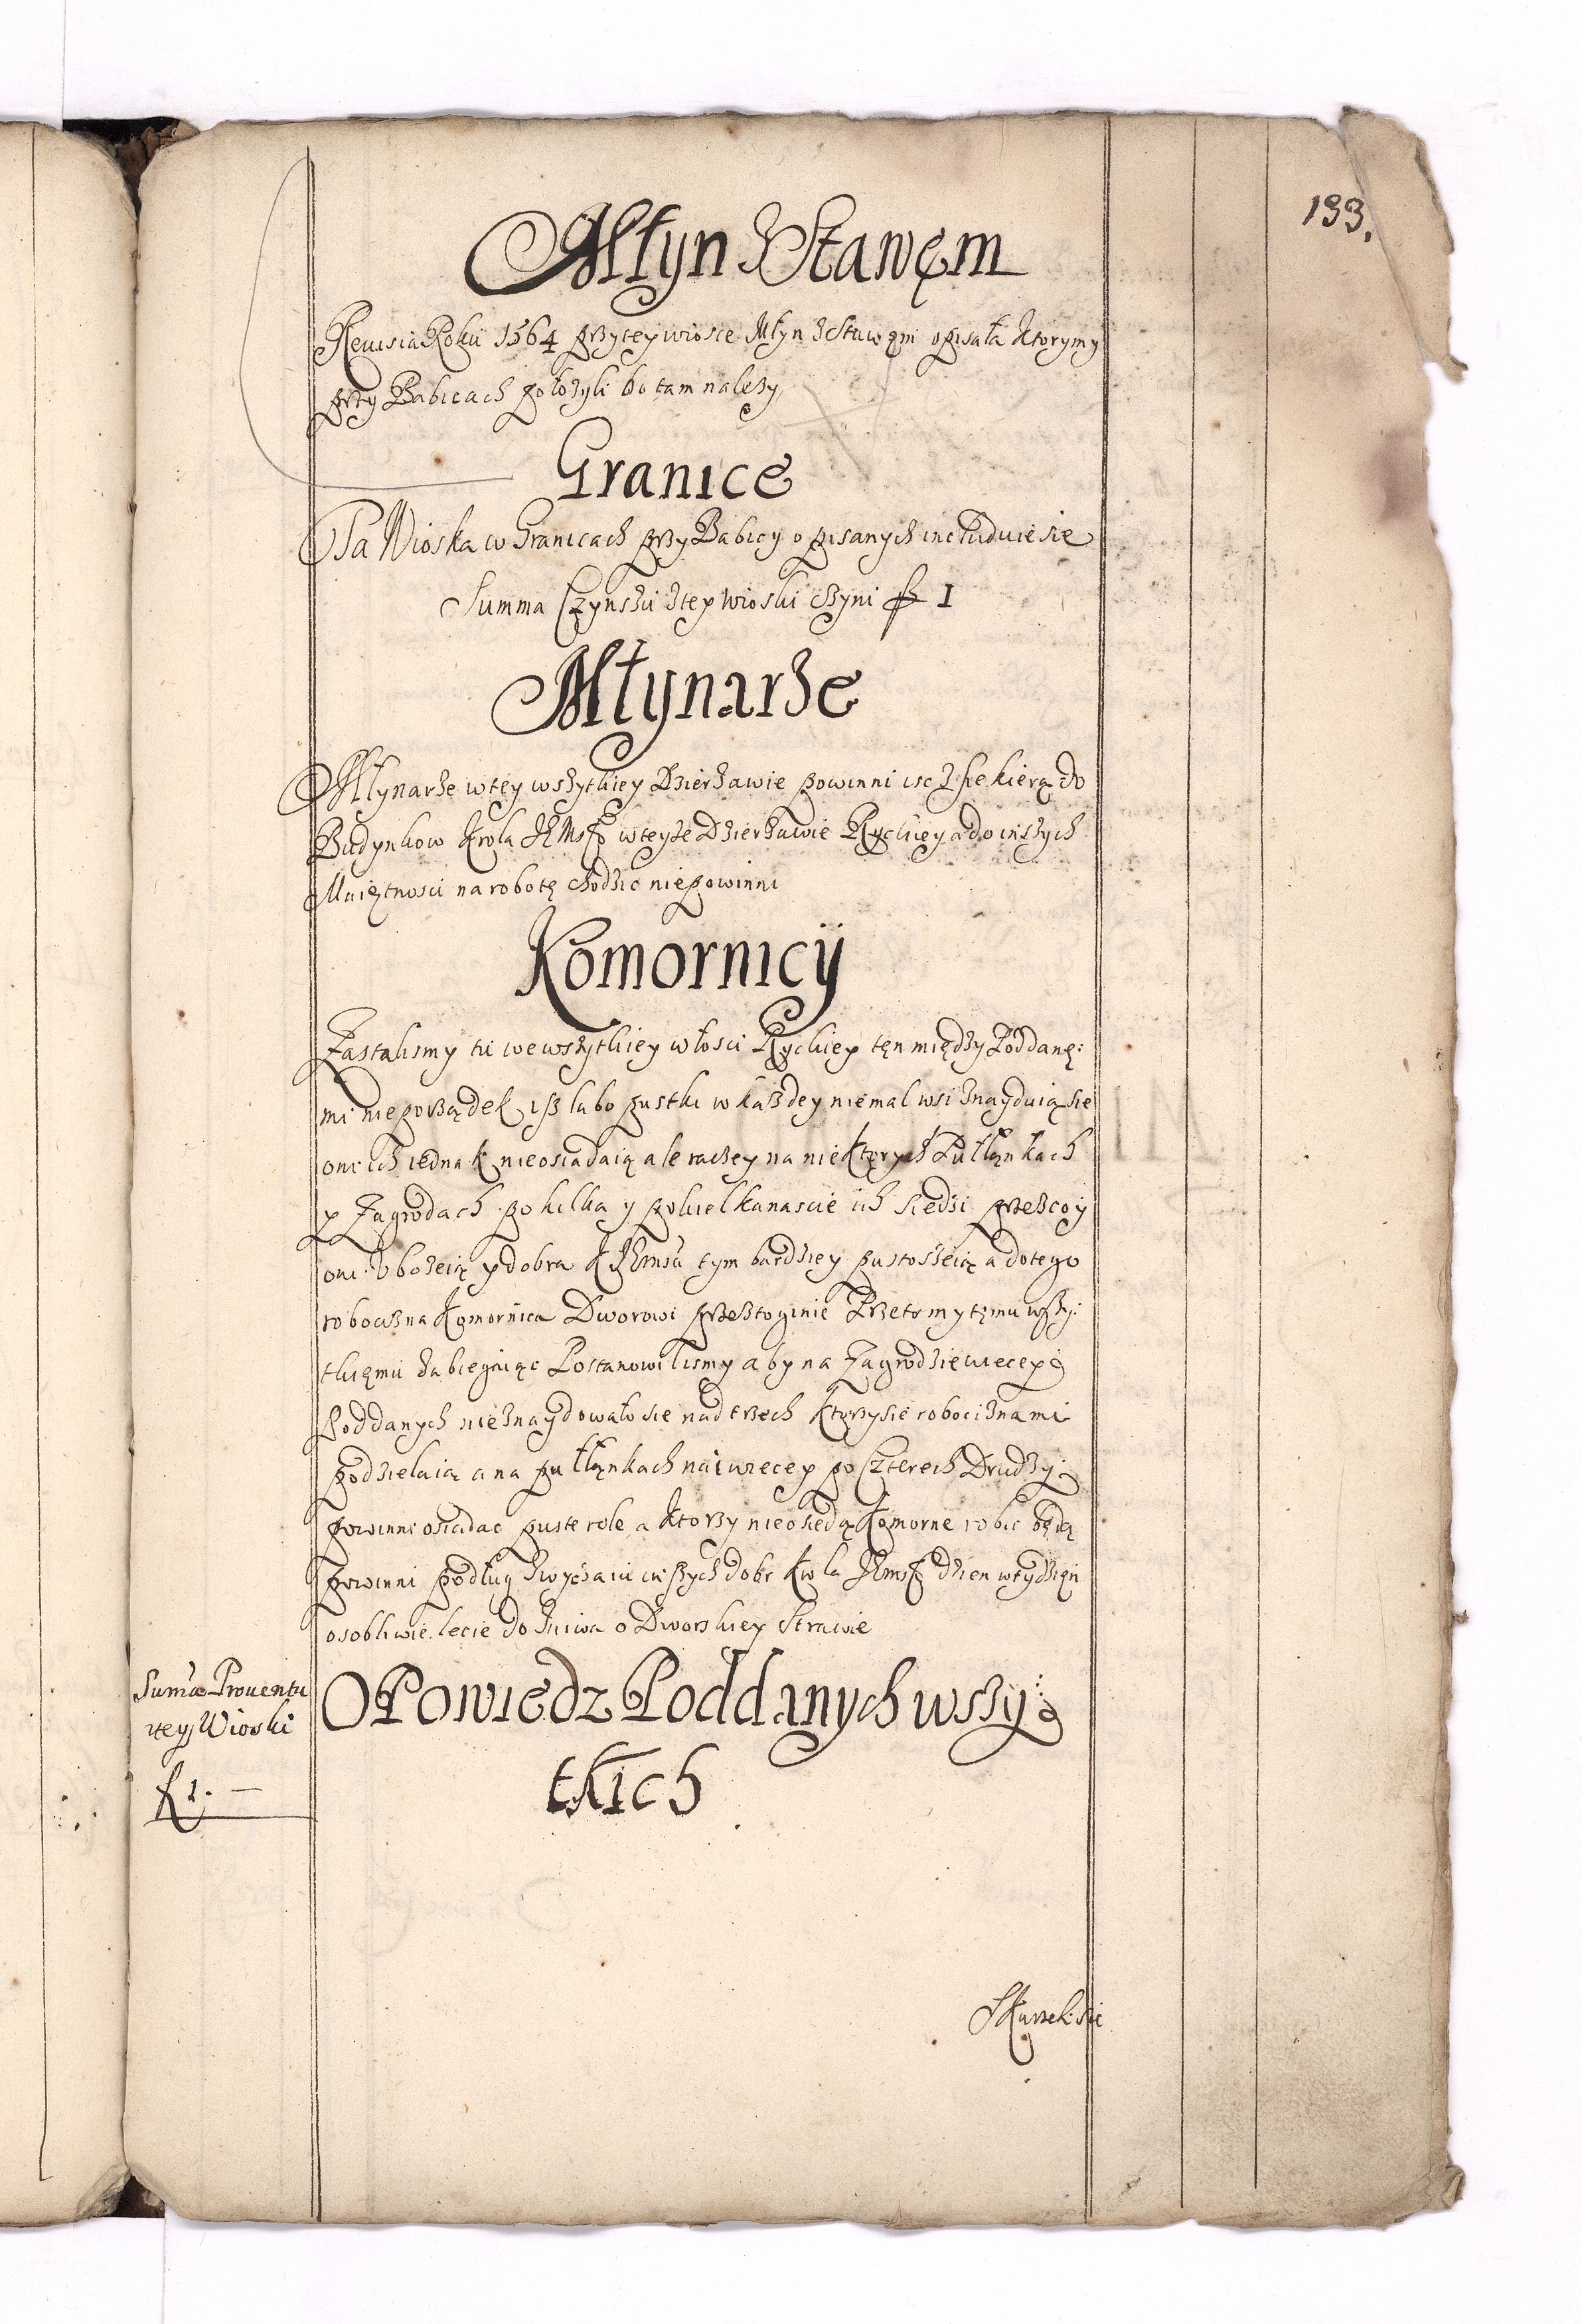 133.
Młyn z Stawęm
Reuisia Roku 1564 przy tey wiosce Młyn z Stawęm opisała ktorymy
przy Babicach położyli bo tam należy
Granice
Ta Wioska w Granicach przy Babicy opisanych includuie się
Summa Czynszu z tey wioski czyni f 1
Młynarze
Młynarze w tey wszytkiey Dzierżawie powinni isc z siekierą do
Budynkow Krola JEMśći w teyże Dzierżawie Ryckiey a do inszych
Maiętnosci na robotę chodzic niepowinni
Komornicÿ
Zastalismy tu we wszytkiey włosci Ryckiey tęn między Poddanę:
mi nieporządek isz lubo pustki w każdey niemal wsi znayduią się
oni ich iednak nieosiadaią ale raczey na niektorych Putłankach
y Zagrodach po kilka y pokielkanascie ich siedzi przez co y
oni ubożeią y dobra KJEmśći tym bardziey pustoszeią a do tego
robocizna Komornicza Dworowi przez to ginie Przeto my tęmu wszy:
tkięmu zabiegaiąc Postanowilismy aby na Zagrodzie wiecey
Poddanych nieznaydowało sie nad trzech ktorzy sie robociznami
podzielaią a na putłankach naiwiecey po Czterech Drudzy
powinni osiadac puste role a ktorzy nieosiędą Komorne robic będą
powinni podług zwyczaiu inszych dobr Krola JEmśći dzien w tydzięn
osobliwie lecie do Zniwa o Dworskiey Strawie
Suma Prouentu
z tey Wioski
f 1. —
OPowiedz Poddanych wszy:
tkich
Skarzeli sie